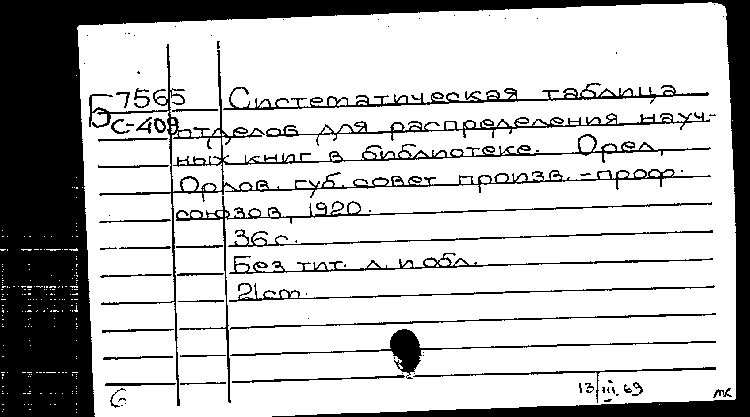 Б 7565 Систематическая таблица
С-409 отделов для распределения науч-
ных книг в библиотеке. Орел,
Орлов. губ. совет произв.-проф.
союзов, 1920.
36 с.
Без тит. л. и обл.
21 cm.
6 13/III.69 мк